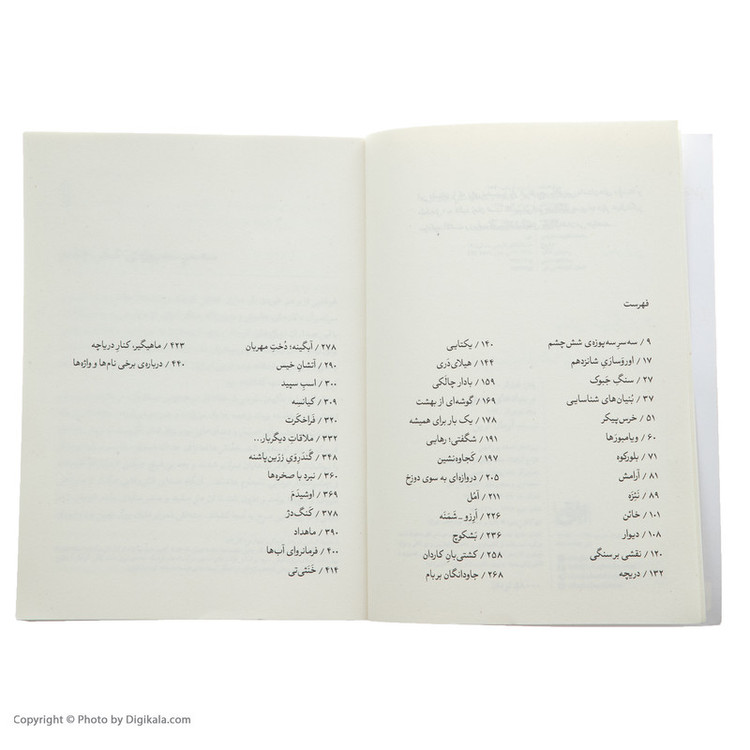 فهرست
۹ / سه‌سرِ سه‌پوزه‌ی شش‌چشم
۱۷ / اوروَسازیِ شانزدهم
۲۷ / سنگِ جَبوک
۳۷ / بُنیان‌های شناسایی
۵۱ / خرس‌پیکر
۶۰ / ویامبورَها
۷۱ / بلورکوه
۸۱ / آرامش
۸۹ / نَیْزَه
۱۰۱ / خائن
۱۰۸ / دیوار
۱۲۰ / نقشی بر سنگی
۱۳۲ / دریچه
۱۴۰ / یکتایی
۱۴۴ / هیلای دَری
۱۵۹ / بادار چالَکی
۱۶۹ / گوشه‌ای از بهشت
۱۷۸ / یک بار برای همیشه
۱۹۱ / شگفتی؛ رهایی
۱۹۷ / کَجاوه‌نشین
۲۰۵ / دروازه‌ای به سوی دوزخ
۲۱۱ / اَمُل
۲۲۶ / آرزو ـ شَمَنَه
۲۳۶ / بَشکوچ
۲۵۸ / کشتی‌بانِ کاردان
۲۶۸ / جاودانگان بر بام
۲۷۸ / آبگینه؛ دُختِ مهربان
۲۹۰ / آتشانِ خیس
۳۰۰ / اسبِ سپید
۳۰۹ / کیانسِه
۳۲۰ / فَراخکَرت
۳۳۲ / ملاقات دیگربار...
۳۴۸ / گَندَرِوی زرّین‌پاشنه
۳۶۰ / نبرد با صخره‌ها
۳۶۹ / اوشیدَم
۳۷۸ / کَنگ‌دژ
۳۹۰ / ماهداد
۴۰۰ / فرمانروای آب‌ها
۴۱۴ / خَنَثی‌تی
۴۲۳ / ماهیگیر، کنارِ دریاچه
۴۴۰ / درباره‌ی برخی نام‌ها و واژه‌ها
Copyright © Photo by Digikala.com